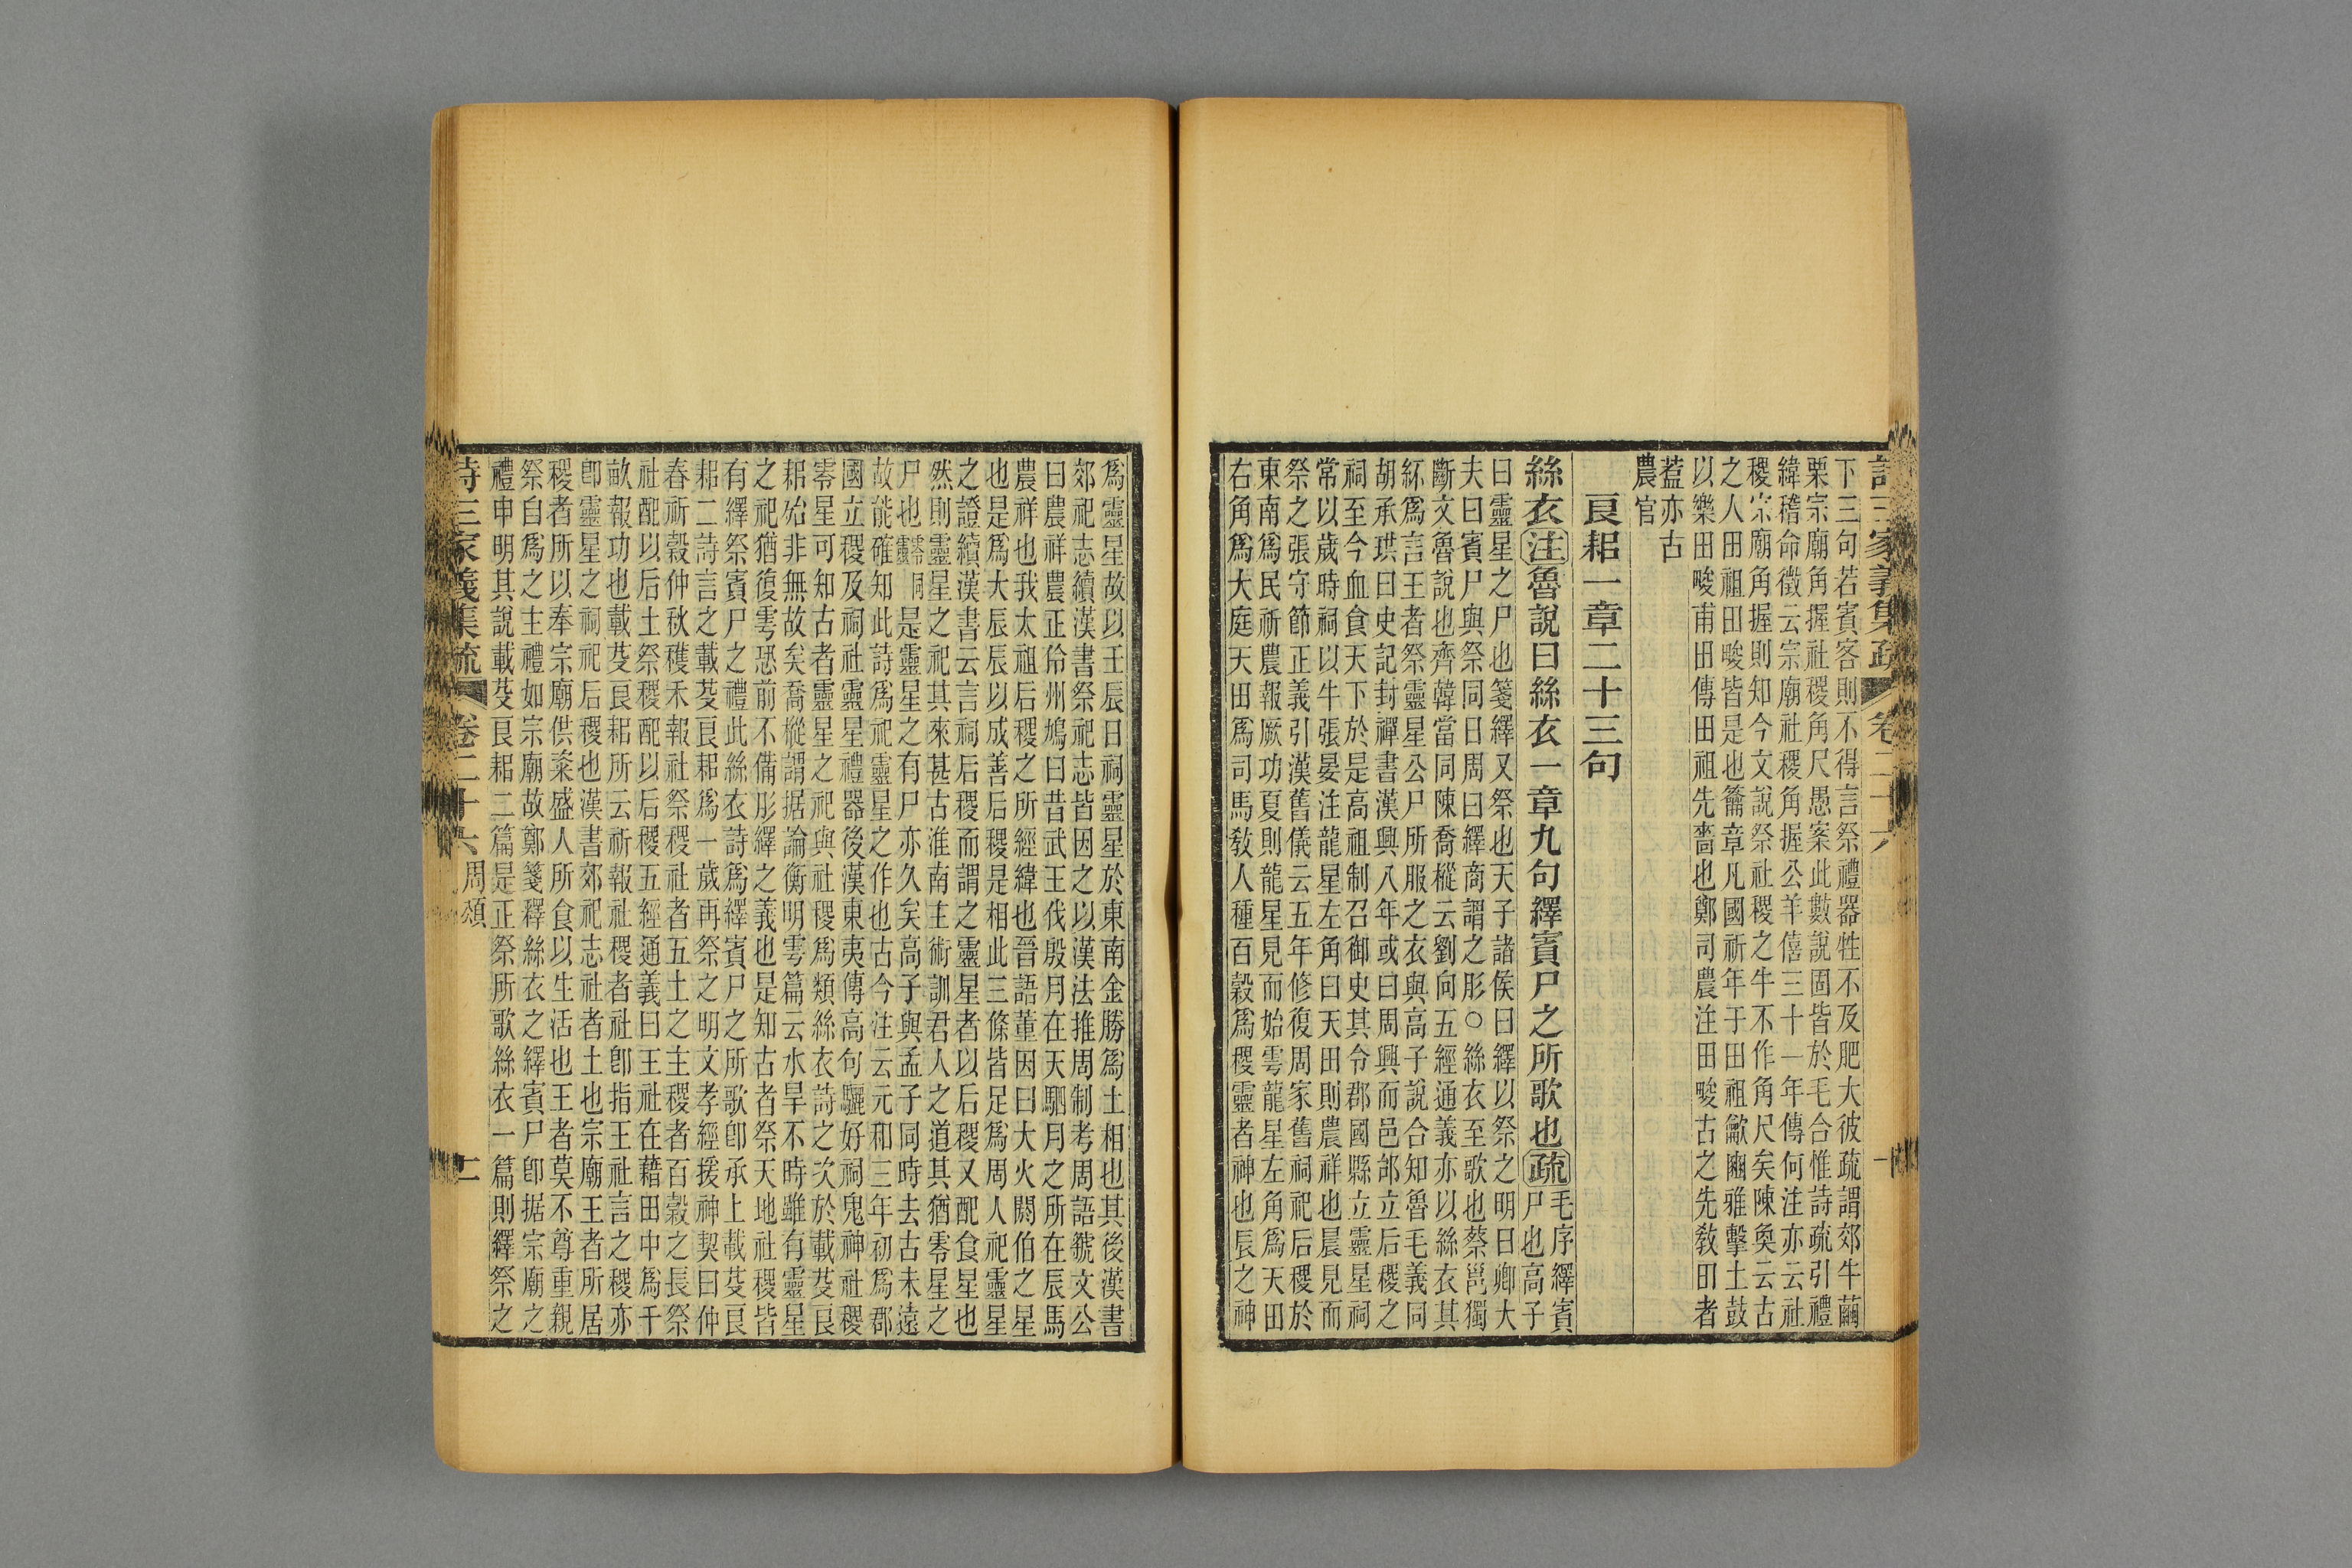 詩三家義集疏 卷二十六 十
下三句若賓客則不得言祭禮器牲不及肥大彼疏謂郊牛繭
栗宗廟角握社稷角尺愚案此數說固皆於毛合惟詩疏引禮
緯稽命徵云宗廟社稷角握公羊僖三十一年傳何注亦云社
稷宗廟角握則知今文說祭社稷之牛不作角尺矣陳奐云古
之人田祖田畯皆是也籥章凡國祈年于田祖龡豳雅擊土鼓
以樂田畯甫田傳田祖先嗇也鄭司農注田畯古之先敎田者
葢亦古
農官
良耜一章二十三句
絲衣注魯說曰絲衣一章九句繹賓尸之所歌也疏毛序繹賓
尸也高子
曰靈星之尸也箋繹又祭也天子諸侯曰繹以祭之明日卿大
夫曰賓尸與祭同日周曰繹商謂之肜○絲衣至歌也蔡邕獨
斷文魯說也齊韓當同陳喬樅云劉向五經通義亦以絲衣其
紑爲言王者祭靈星公尸所服之衣與高子說合知魯毛義同
胡承珙曰史記封禪書漢興八年或曰周興而邑邰立后稷之
祠至今血食天下於是高祖制召御史其令郡國縣立靈星祠
常以歲時祠以牛張晏注龍星左角曰天田則農祥也晨見而
祭之張守節正義引漢舊儀云五年修復周家舊祠祀后稷於
東南爲民祈農報厥功夏則龍星見而始雩龍星左角爲天田
右角爲大庭天田爲司馬敎人種百穀爲稷靈者神也辰之神
爲靈星故以壬辰日祠靈星於東南金勝爲土相也其後漢書
郊祀志續漢書祭祀志皆因之以漢法推周制考周語虢文公
曰農祥農正伶州鳩曰昔武王伐殷月在天駟月之所在辰馬
農祥也我太祖后稷之所經緯也晉語董因曰大火閼伯之星
也是爲大辰辰以成善后稷是相此三條皆足爲周人祀靈星
之證續漢書云言祠后稷而謂之靈星者以后稷又配食星也
然則靈星之祀其來甚古淮南主術訓君人之道其猶零星之
尸也零同靈是靈星之有尸亦久矣高子與孟子同時去古未遠
故能確知此詩爲祀靈星之作也古今注云元和三年初爲郡
國立稷及祠社靈星禮器後漢東夷傳高句驪好祠鬼神社稷
零星可知古者靈星之祀與社稷爲類絲衣詩之次於載芟良
耜始非無故矣喬樅謂据論衡明雩篇云水旱不時雖有靈星
之祀猶復雩恐前不備肜繹之義也是知古者祭天地社稷皆
有繹祭賓尸之禮此絲衣詩爲繹賓尸之所歌卽承上載芟良
耜二詩言之載芟良耜爲一歲再祭之明文孝經援神契曰仲
春祈穀仲秋穫禾報社祭稷社者五土之主稷者百穀之長祭
社配以后土祭稷配以后稷五經通義曰王社在藉田中爲千
畝報功也載芟良耜所云祈報社稷者社卽指王社言之稷亦
卽靈星之祠祀后稷也漢書郊祀志社者土也宗廟王者所居
稷者所以奉宗廟供粢盛人所食以生活也王者莫不尊重親
祭自爲之主禮如宗廟故鄭箋釋絲衣之繹賓尸卽据宗廟之
禮申明其說載芟良耜二篇是正祭所歌絲衣一篇則繹祭之
詩三家義集疏 卷二十六 周頌 十一